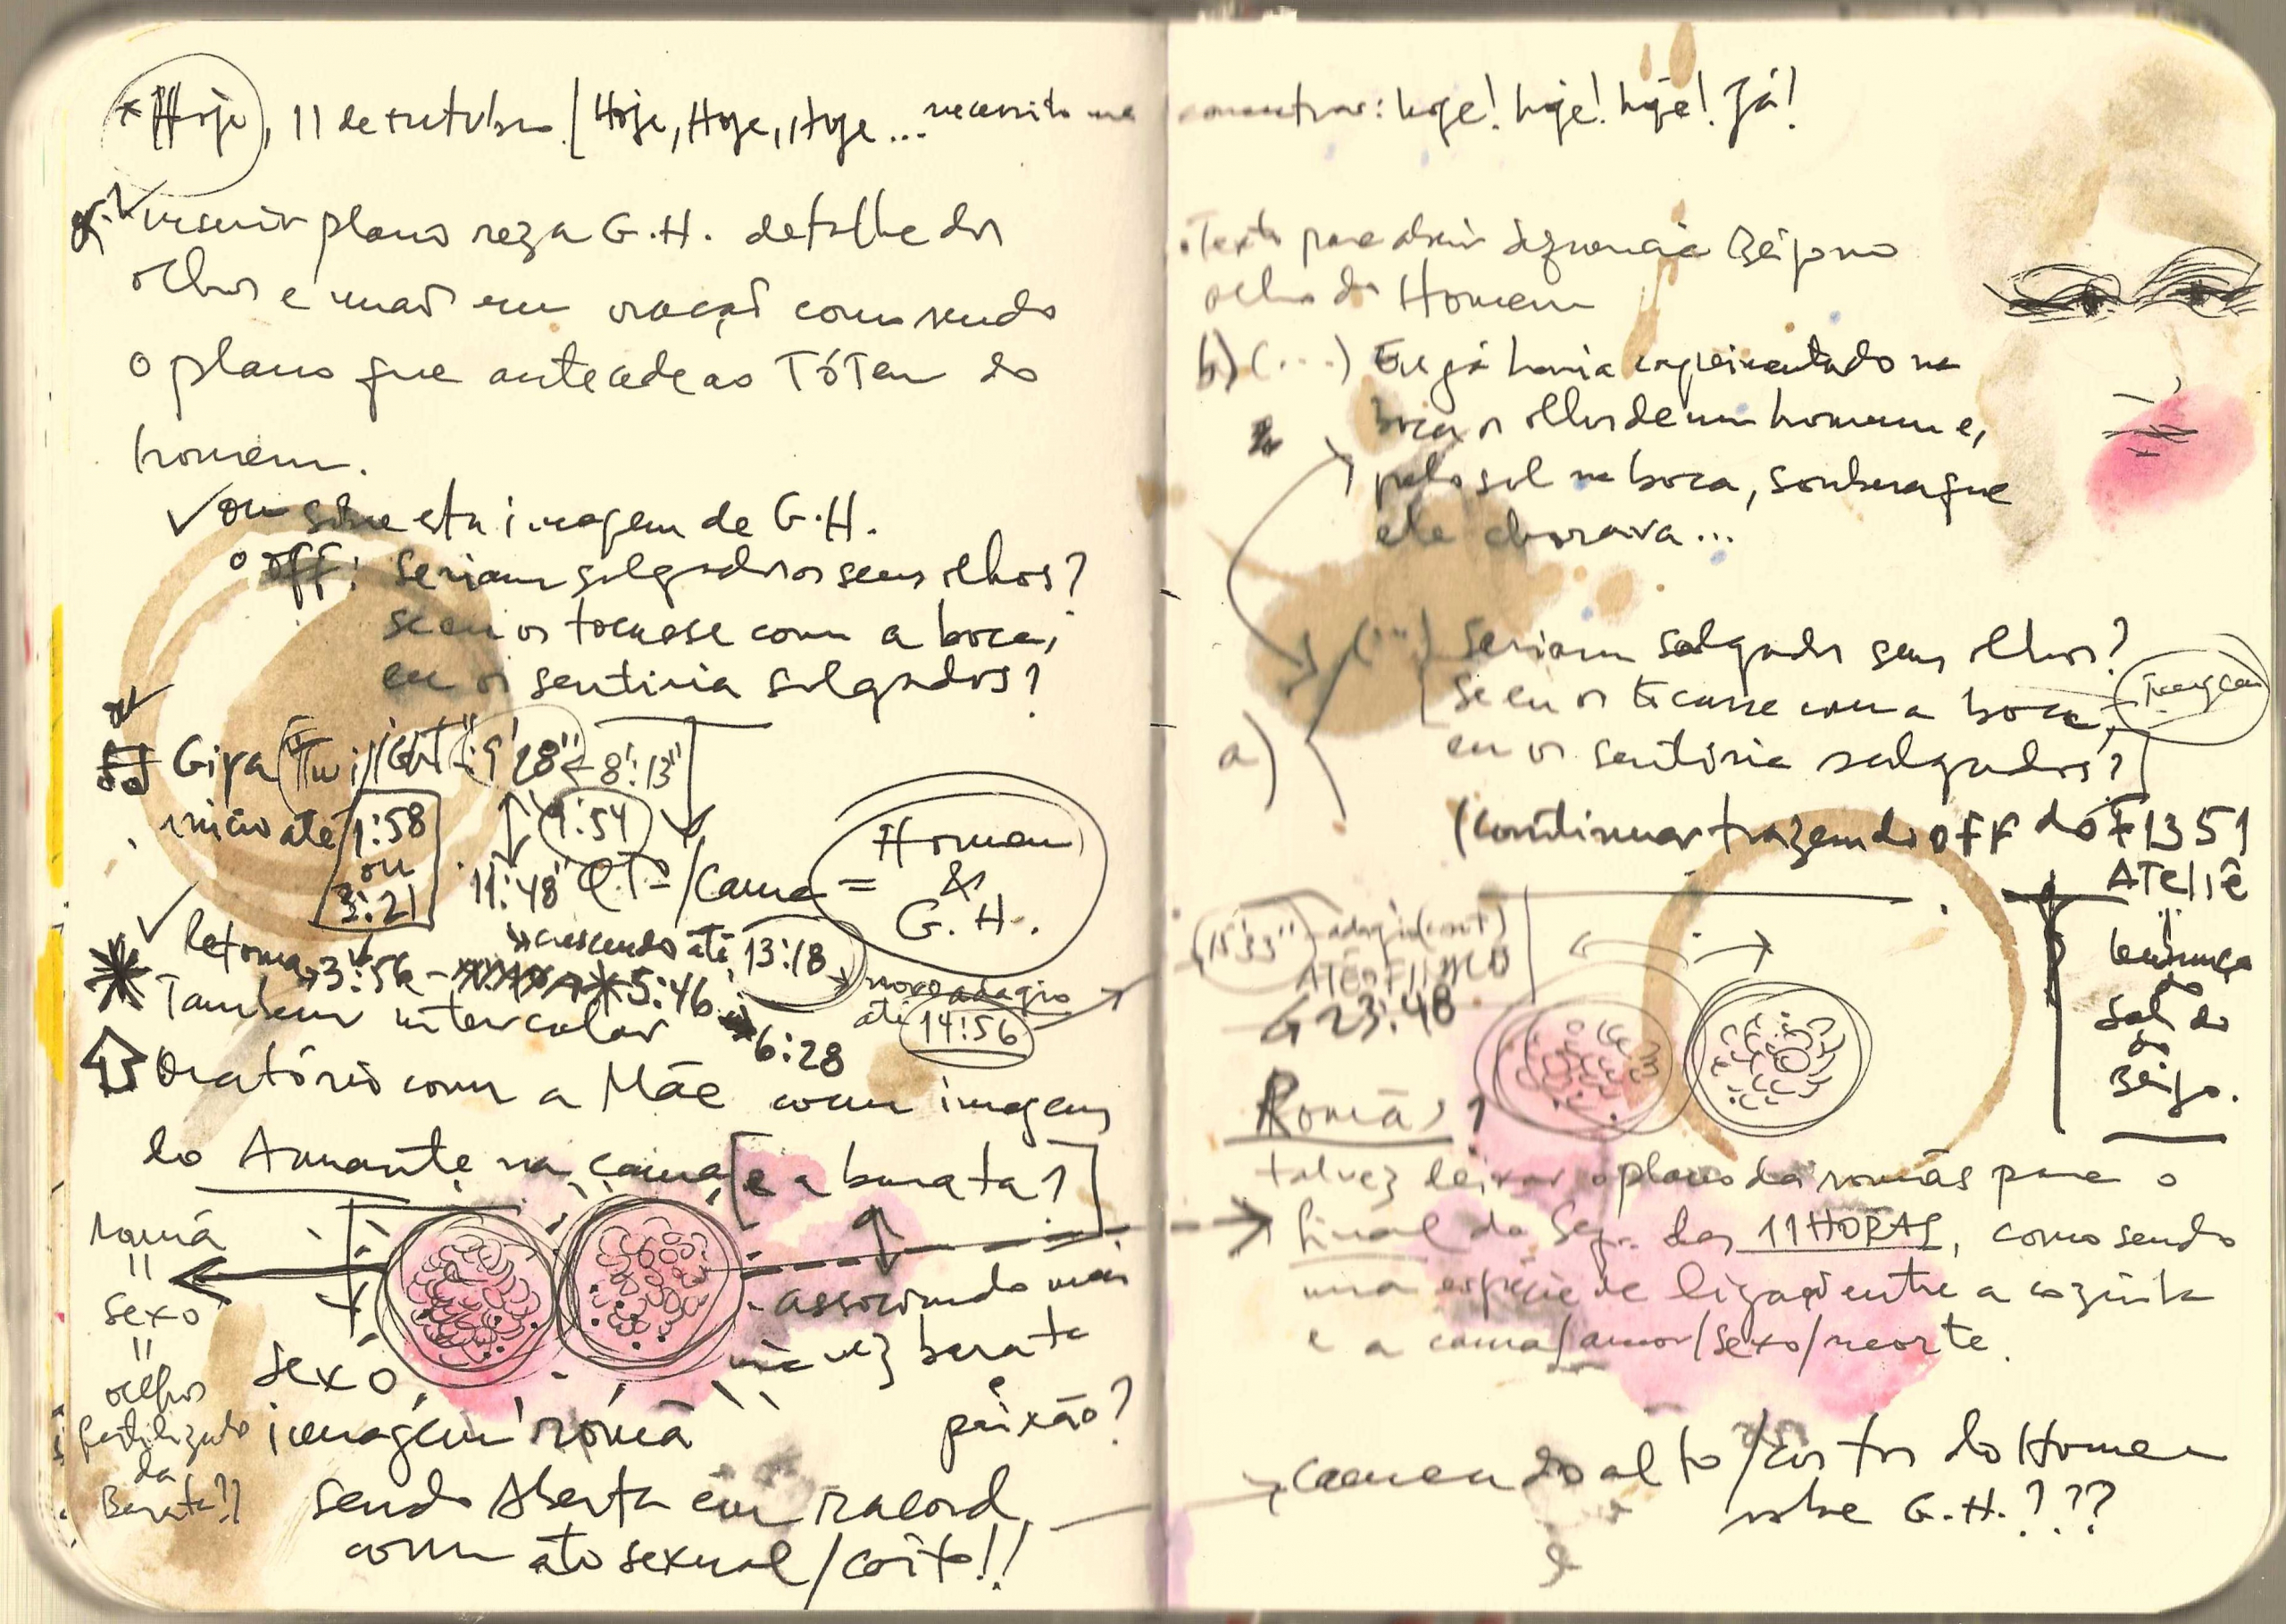 * Hoje, 11 de outubro / Hoje, Hoje, Hoje... necessito me
plano reza G.H. detalhe dos
olhos e mãos em oração como sendo
o plano que antecede ao TóTem do
homem.
✓ ou sobre esta imagem de G.H.
o off: seriam salgados os seus olhos?
se eu os tocasse com a boca,
eu os sentiria salgados?
Gira (Twilight 9'28" 8':13"
início até 1:58 ou 3:21
9:54
11:48" Q.T. /Cama = Homem & G.H.
Retoma 3:56 - 5:46
crescendo até 13:18
novo adagio
até 14:56
Também intercalar 6:28
Oratório com a Mãe com imagem
do Amante na cama [e a barata?]
romã
=
sexo
=
olhos
fertilizado
da
Barata!!
associando mais
uma vez barata
e
paixão?
sexo
imagem romã
sendo Aberta em racord
com ato sexual/coito!!
concentrar: hoje! hoje! hoje! Já!
• Texto para abrir sequência Beijo no
olho do Homem
b) (...) Eu já havia experimentado na
boca os olhos de um homem e,
pelo sal na boca, soubera que
ele chorava...
a) (...) seriam salgados seus olhos?
se eu os tocasse com a boca,
eu os sentiria salgados?
(continuar trazendo off do F1351
ATeliê
=
lembrança
do
sal do
Beijo.
15'33" adagio (cont)
ATÉ O FINAL
23:48
Romãs
talvez deixar o plano da romãs para o
final da Seq. das 11 HORAS, como sendo
uma espécie de ligação entre a cozinha
e a cama/amor/sexo/morte.
Camera do alto/costas do Homem
sobre G.H.???